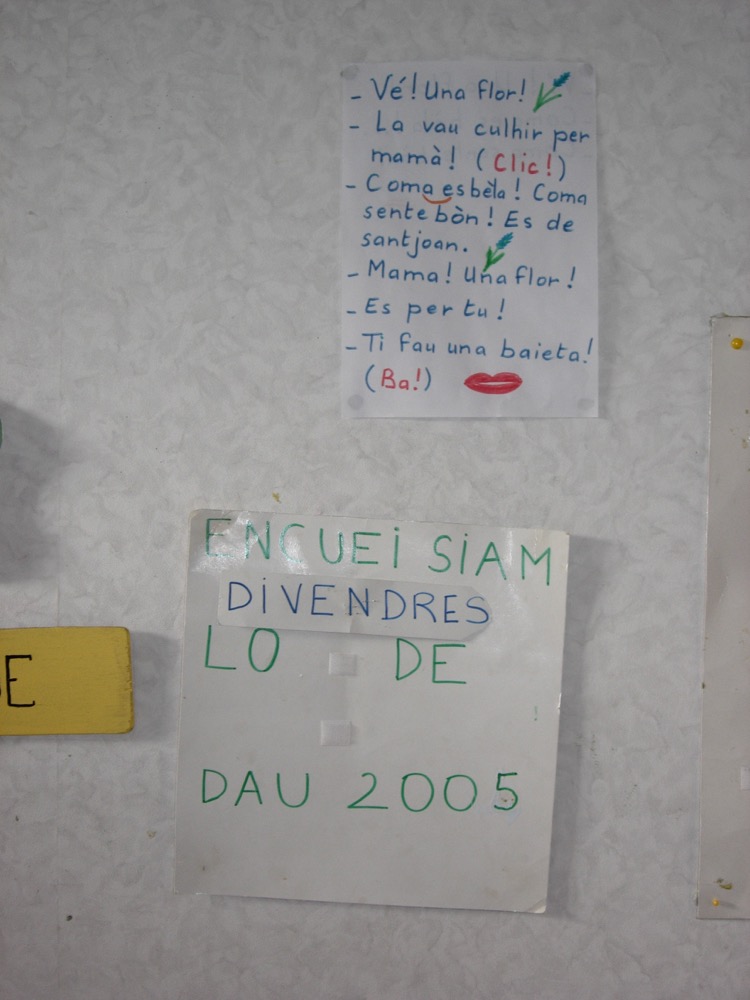 - Vé! Una flor!
- La vau culhir per
mamà! (Clic!)
- Coma es bèla! Coma
sente bòn! Es de
santjoan.
- Mama! Una flor!
- Es per tu!
- Ti fau una baieta!
(Ba!)
ENCUEi SiAM
DiVENDRES
LO DE
DAU 2005
E